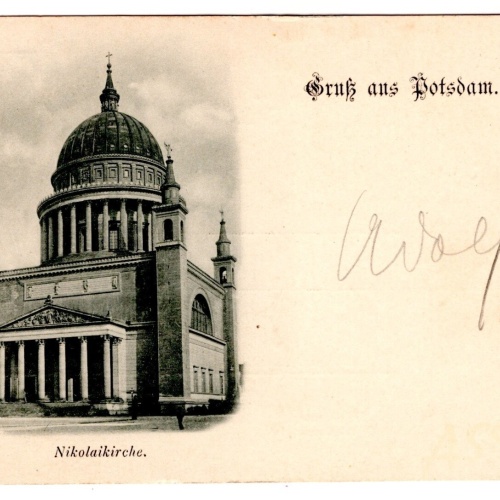 Gruß aus Potsdam.
Adolf
Nikolaikirche.